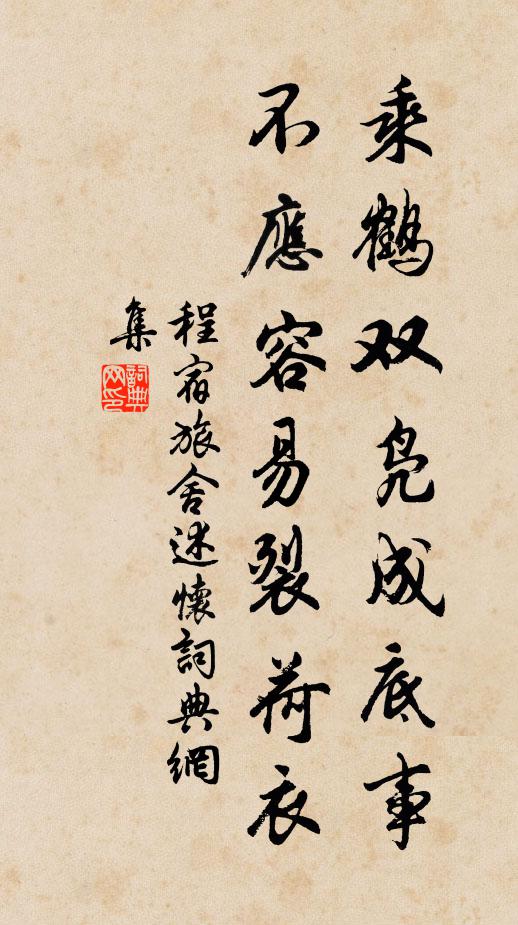 乘鶴双凫成底事
不應容易裂荷衣
程宿旅舍述懷詞典網
集
詞典
网印